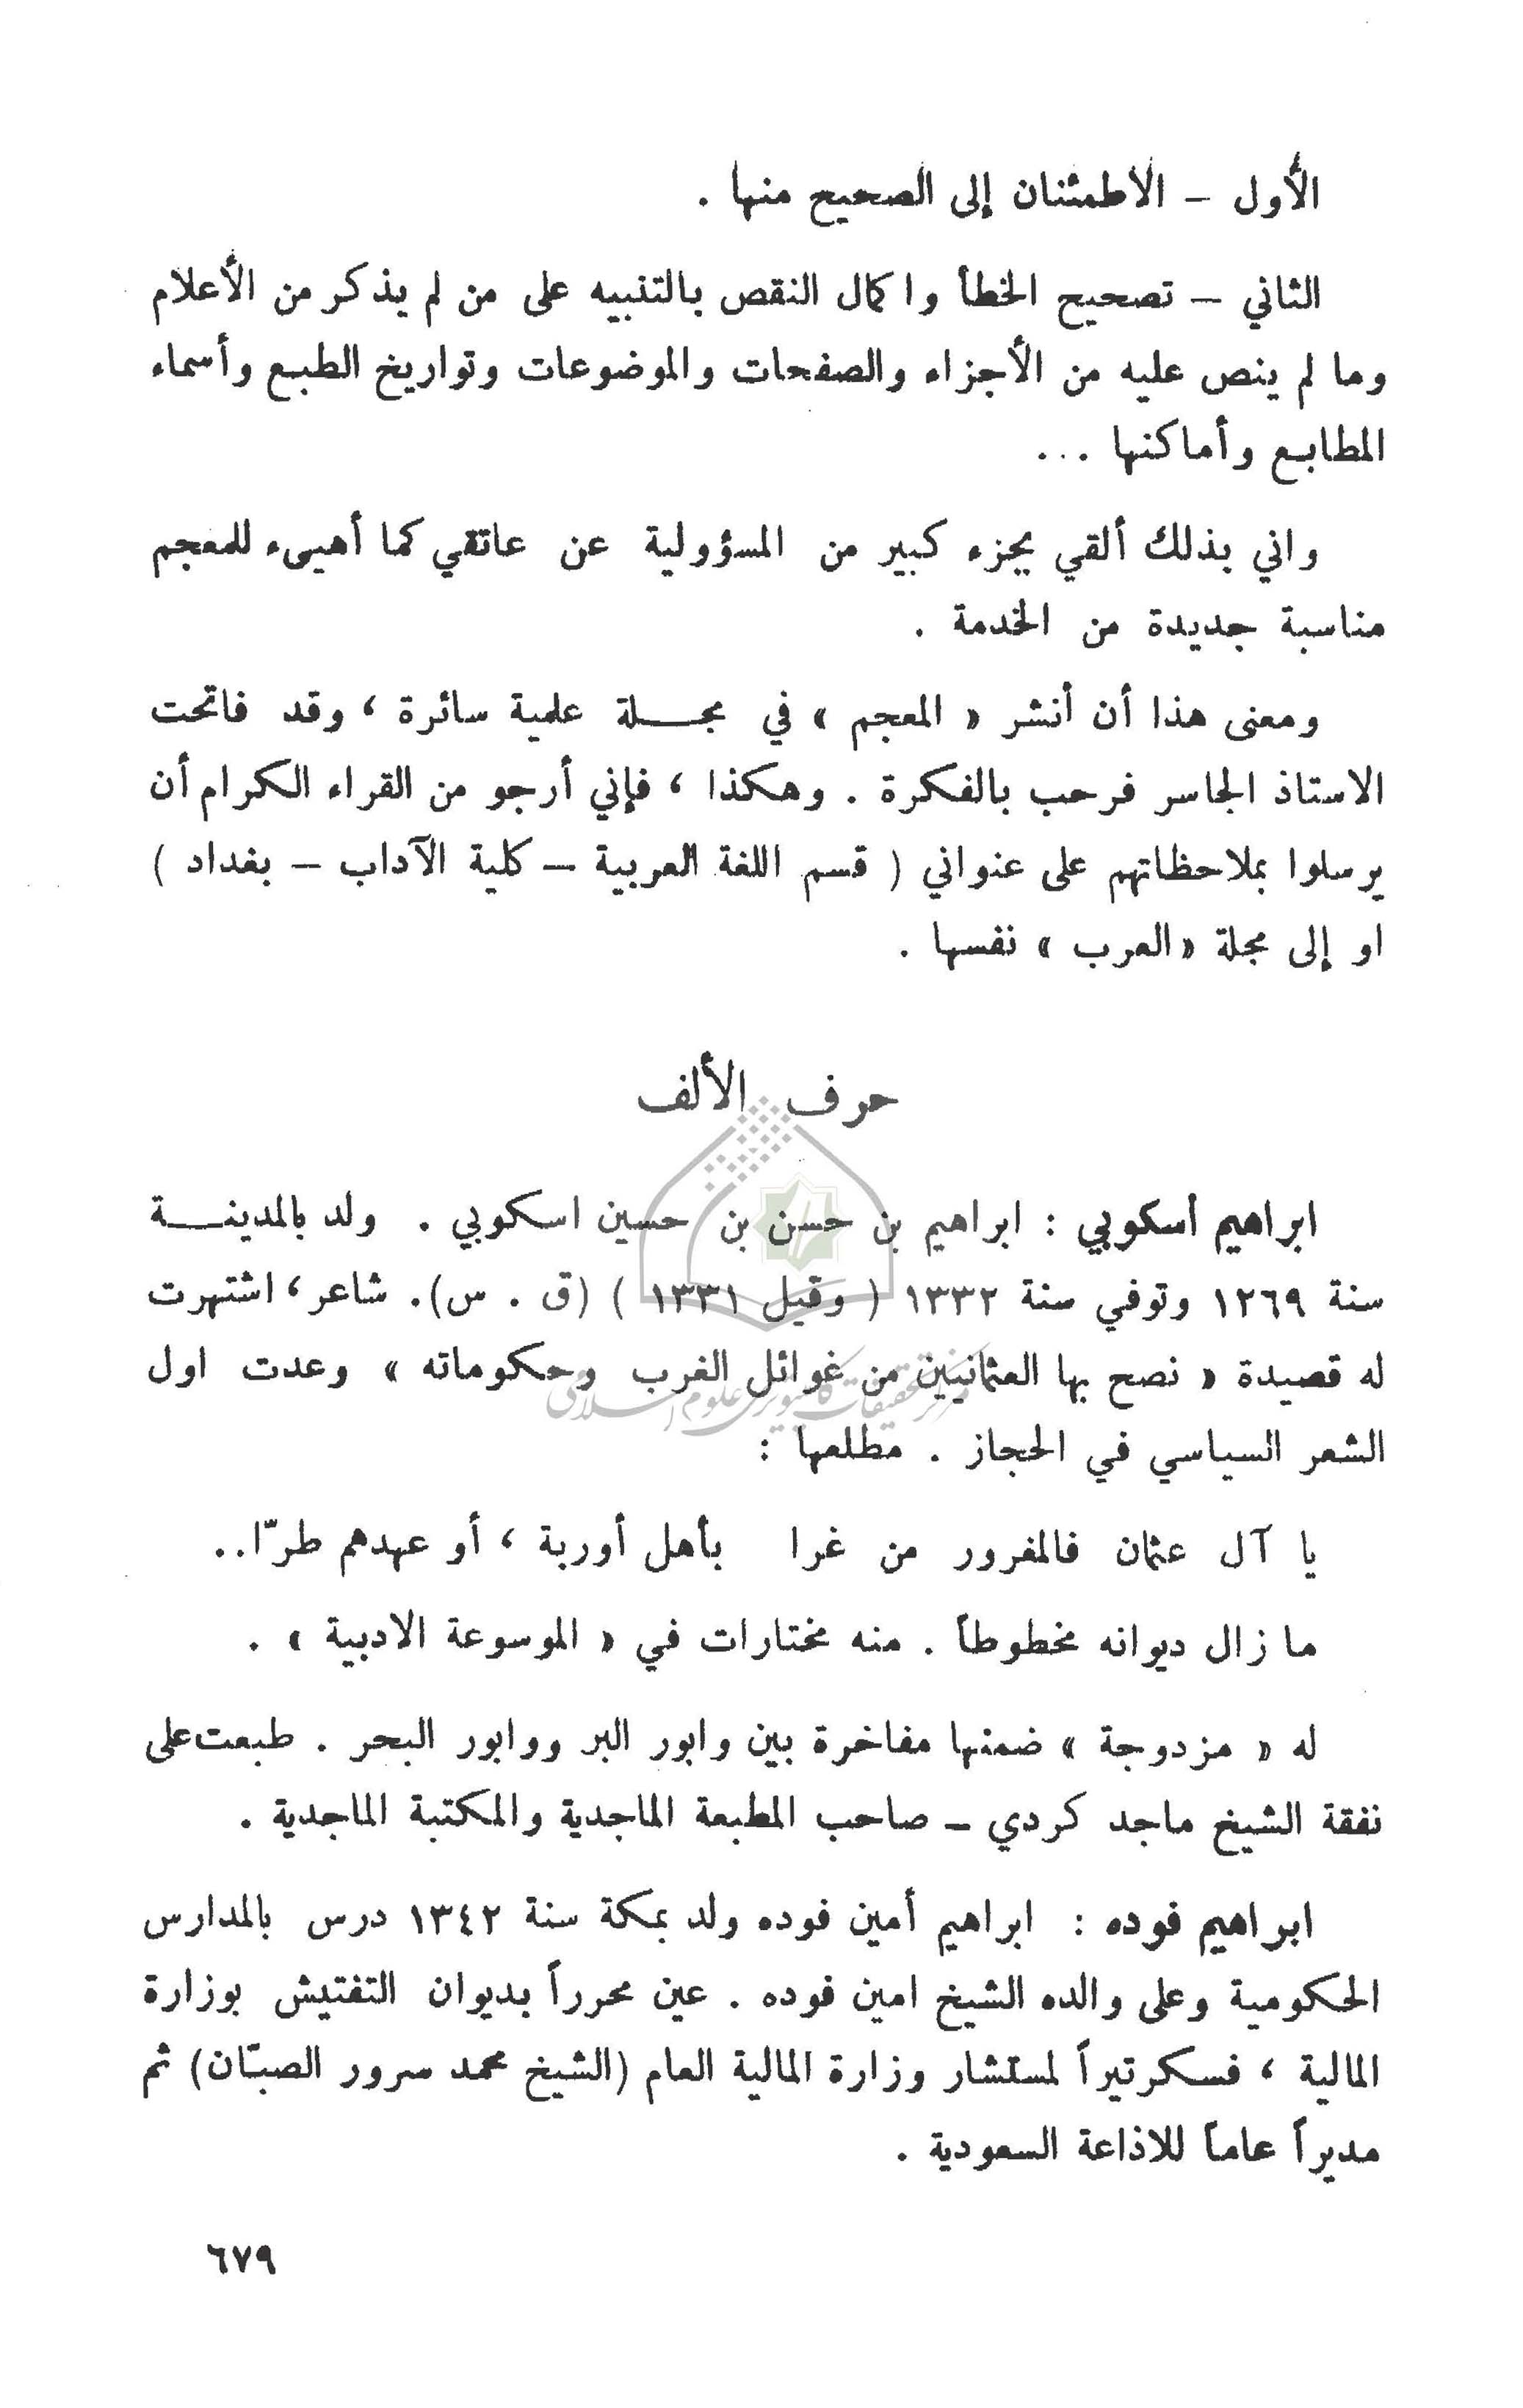 الأول – الاطمئنان إلى الصحيح منها .
الثاني – تصحيح الخطأ واكمال النقص بالتنبيه على من لم يذكر من الأعلام
وما لم ينص عليه من الأجزاء والصفحات والموضوعات وتواريخ الطبع وأسماء
المطابع وأماكنها ...
واني بذلك ألقي بجزء كبير من المسؤولية عن عاتقي كما أهيىء للمعجم
مناسبة جديدة من الخدمة .
ومعنى هذا أن أنشر « المعجم » في مجلة علمية سائرة ، وقد فاتحت
الاستاذ الجاسر فرحب بالفكرة . وهكذا ، فإني أرجو من القراء الكرام أن
يرسلوا بملاحظاتهم على عنواني ( قسم اللغة العربية – كلية الآداب – بغداد )
او إلى مجلة «العرب » نفسها .
حرف الألف
ابراهيم أسكوبي : ابراهيم بن حسن بن حسين اسكوبي . ولد بالمدينة
سنة ١٢٦٩ وتوفي سنة ١٣٣٢ ( وقيل ١٣٣١ ) (ق . س). شاعر، اشتهرت
له قصيدة « نصح بها العثمانيين من غوائل الغرب وحكوماته » وعدت اول
الشعر السياسي في الحجاز . مطلعها :
يا آل عثمان فالمغرور من غرا بأهل أوربة ، أو عهدهم طرّا..
ما زال ديوانه مخطوطاً . منه مختارات في « الموسوعة الادبية » .
له « مزدوجة » ضمنها مفاخرة بين وابور البر ووابور البحر . طبعت على
نفقة الشيخ ماجد كردي – صاحب المطبعة الماجدية والمكتبة الماجدية .
ابراهيم فوده : ابراهيم أمين فوده ولد بمكة سنة ١٣٤٢ درس بالمدارس
الحكومية وعلى والده الشيخ امين فوده . عين محرراً بديوان التفتيش بوزارة
المالية ، فسكرتيراً لمستشار وزارة المالية العام (الشيخ محمد سرور الصبّان) ثم
مديراً عاماً للاذاعة السعودية .
٦٧٩
مركز تحقيقات كامپيوتری علوم اسلامی